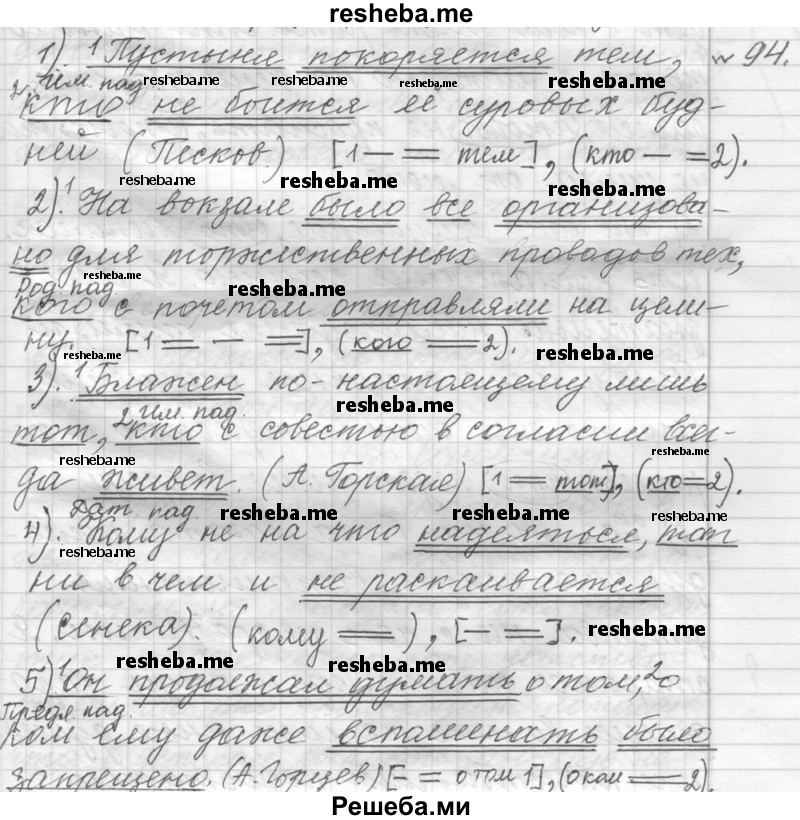 resheba.me
1) 1 Пустыня покоряется тем, № 94.
2 Им. пад. resheba.me resheba.me resheba.me resheba.me
кто не боится её суровых буд-
ней (Песков.) [1 — = тем], (кто — = 2).
resheba.me resheba.me resheba.me
2). 1 На вокзале было все организова-
но для торжественных проводов тех,
Род. пад. resheba.me resheba.me
кого с почетом отправляли на цели-
ну. [1 = — =], (кого = 2).
resheba.me resheba.me
3). 1 Блажен по-настоящему лишь
2 Им. пад. resheba.me
тот, кто с совестью в согласии все-
resheba.me resheba.me
да живет. (А. Горская) [1 = тот], (кто = 2).
Дат. пад. resheba.me resheba.me resheba.me
4). Кому не на что надеяться, тот
resheba.me
ни в чем и не раскаивается
(Сенека). (кому =), [— =]. resheba.me
resheba.me resheba.me
5) 1 Он продолжал думать о том, 2 о
Предл. пад.
ком ему даже вспоминать было
запрещено. (А. Горцев) [— = о том 1], (о ком = 2).
Решеба.ми